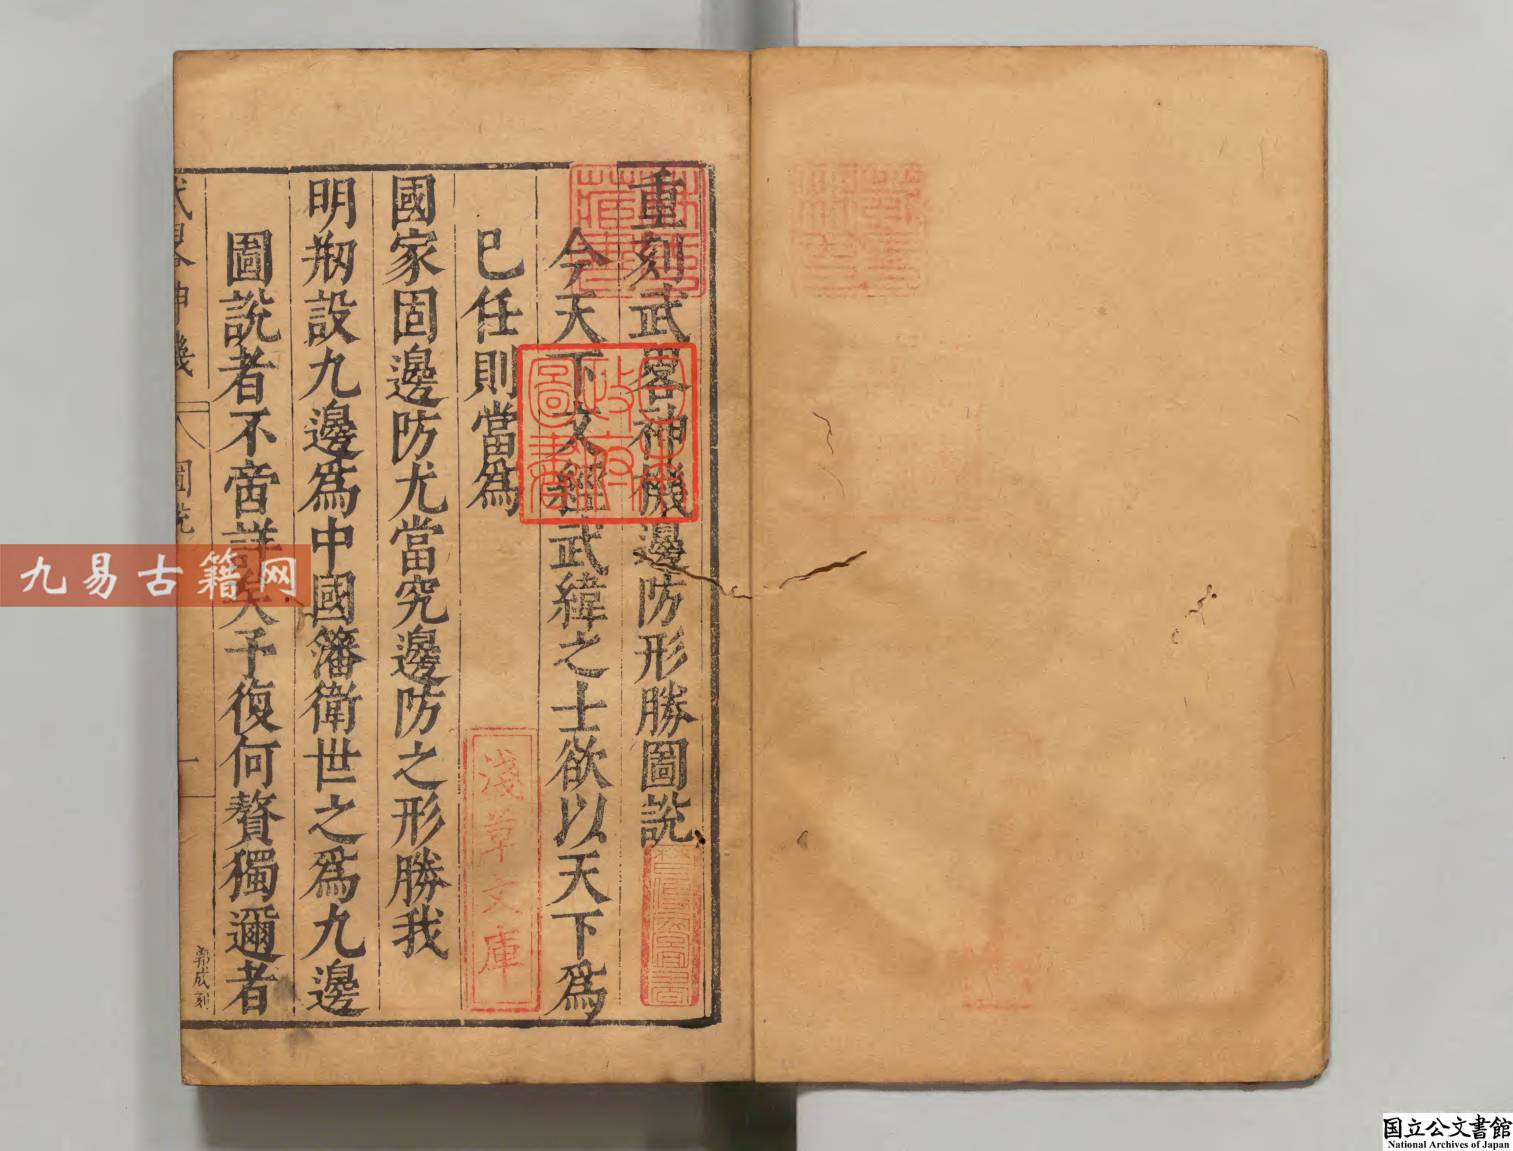 重刻武畧神機邊防形勝圖說
今天下文經武緯之士欲以天下爲
已任則當爲
國家固邊防尤當究邊防之形勝我
明剏設九邊爲中國籓衛世之爲九邊
圖說者不啻詳矣予復何贅獨邇者
圖說
日本政府圖書
淺草文庫
九易古籍网
国立公文書館
National Archives of Japan